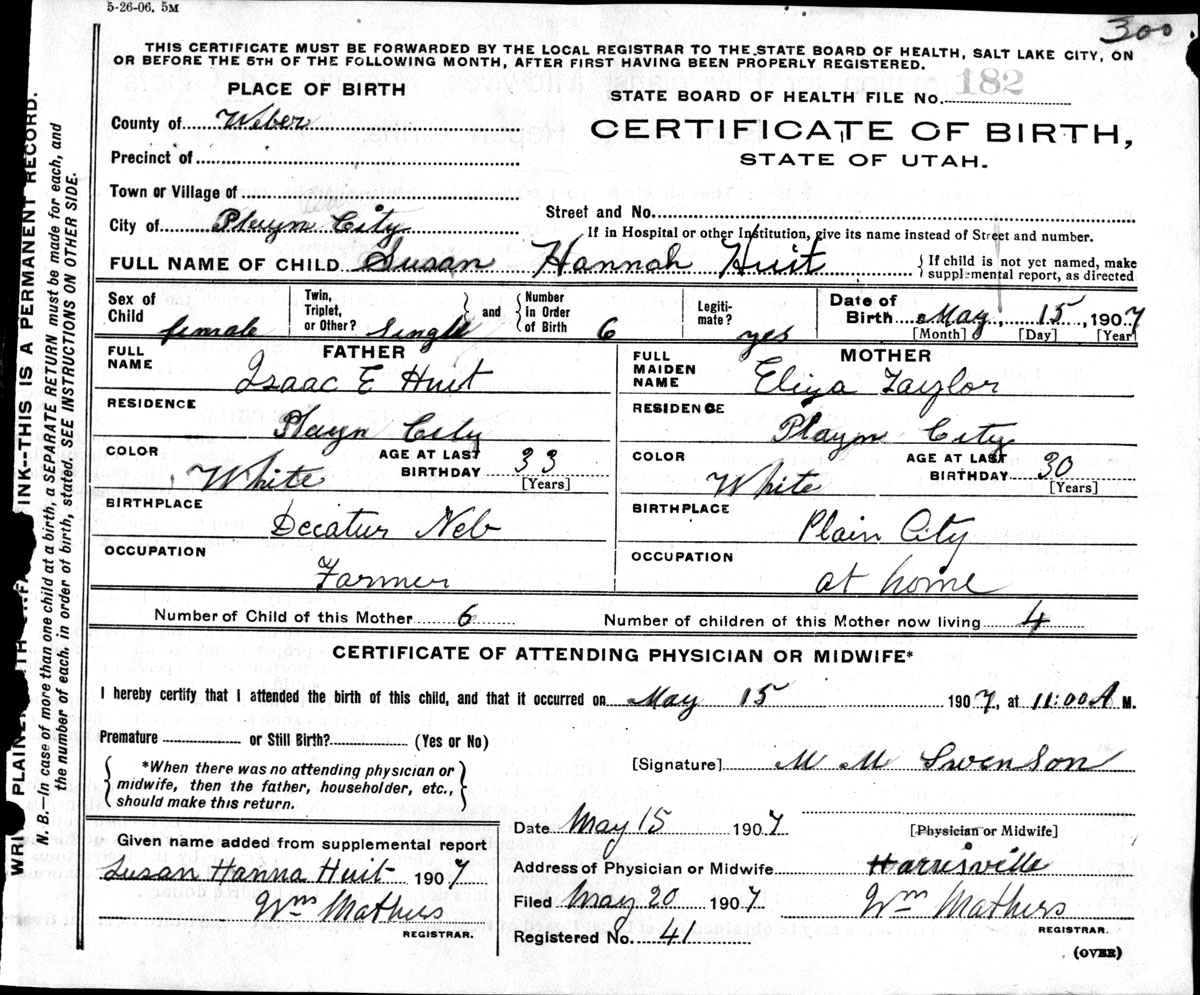 5-26-06. 5M
300
THIS CERTIFICATE MUST BE FORWARDED BY THE LOCAL REGISTRAR TO THE STATE BOARD OF HEALTH, SALT LAKE CITY, ON
OR BEFORE THE 5TH OF THE FOLLOWING MONTH, AFTER FIRST HAVING BEEN PROPERLY REGISTERED.
PLACE OF BIRTH
STATE BOARD OF HEALTH FILE No. 182
County of Weber
CERTIFICATE OF BIRTH,
Precinct of
STATE OF UTAH.
Town or Village of
Street and No.
City of Playn City
If in Hospital or other Institution, give its name instead of Street and number.
FULL NAME OF CHILD Susan Hannah Huit
{ If child is not yet named, make
supplemental report, as directed
Sex of Child female
Twin, Triplet, or Other? Single } and { Number In Order of Birth 6
Legiti- mate? yes
Date of Birth May, 15, 1907
[Month] [Day] [Year]
FATHER
FULL NAME Isaac E Huit
RESIDENCE
Playn City
COLOR White
AGE AT LAST BIRTHDAY 33
[Years]
BIRTHPLACE
Decatur Neb
OCCUPATION
Farmer
MOTHER
FULL MAIDEN NAME Eliza Taylor
RESIDENCE
Playn City
COLOR White
AGE AT LAST BIRTHDAY 30
[Years]
BIRTHPLACE
Plain City
OCCUPATION
at home
Number of Child of this Mother 6
Number of children of this Mother now living 4
CERTIFICATE OF ATTENDING PHYSICIAN OR MIDWIFE*
I hereby certify that I attended the birth of this child, and that it occurred on May 15 1907, at 11:00 A M.
Premature or Still Birth? (Yes or No)
{ *When there was no attending physician or
midwife, then the father, householder, etc.,
should make this return. }
[Signature] M M Swenson
Date May 15 1907
[Physician or Midwife]
Given name added from supplemental report
Susan Hanna Huit 1907
Wm Mathers
REGISTRAR.
Address of Physician or Midwife Harrisville
Filed May 20 1907 Wm Mathers
REGISTRAR.
Registered No. 41
(OVER)
INK--THIS IS A PERMANENT RECORD.
N. B.--In case of more than one child at a birth, a SEPARATE RETURN must be made for each, and
the number of each, in order of birth, stated. SEE INSTRUCTIONS ON OTHER SIDE.